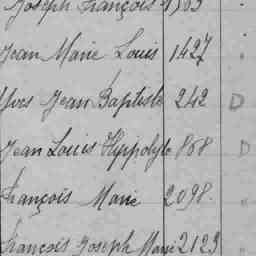 Joseph François 1703
Jean Marie Louis 1427 "
Yves Jean Baptiste 242 D
Jean Louis Hippolyte 868 D
François Marie 2098. "
François Joseph Marie 2123 "